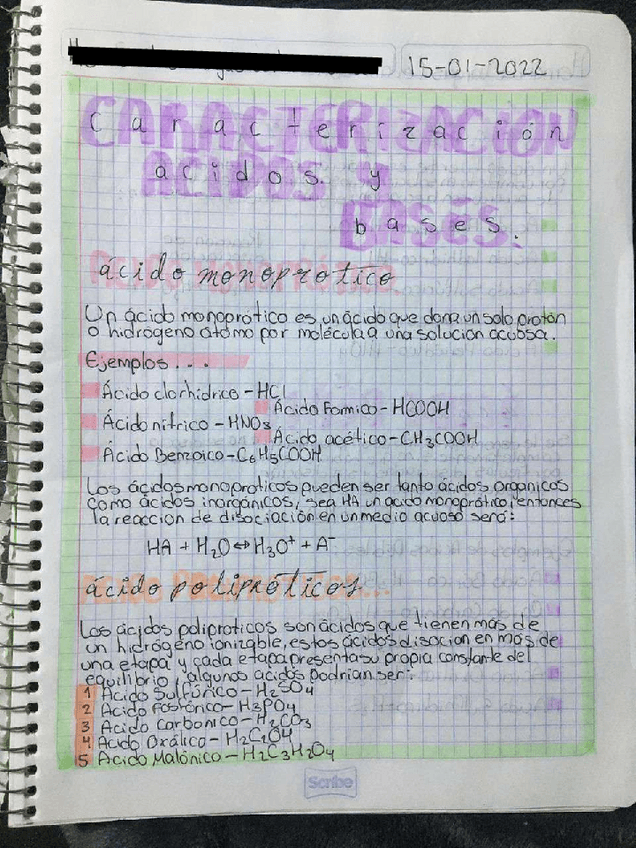 15-01-2022
Caracterización
acidos y
bases.
ácido monoprotico
Un ácido monoprótico es un ácido que dona un solo protón
o hidrógeno átomo por molécula a una solución acuosa.
Ejemplos...
Ácido clorhídrico - HCl
Ácido Formico - HCOOH
Ácido nítrico - HNO3
Ácido acético - CH3COOH
Ácido Benzoico - C6H5COOH
Los ácidos monoproticos pueden ser tanto ácidos organicos
como ácidos inorgánicos, sea HA un acido monoprótico, entonces
la reacción de disociación en un medio acuoso será:
HA + H2O ⇔ H3O+ + A-
ácido polipróticos
Los ácidos poliproticos son ácidos que tienen más de
un hidrógeno ionizable, estos ácidos disocian en más de
una etapa y cada etapa presenta su propia constante del
equilibrio, algunos ácidos podrían ser:
1 Ácido Sulfúrico - H2SO4
2 Ácido Fosfórico - H3PO4
3 Ácido Carbonico - H2CO3
4 Ácido Oxálico - H2C2O4
5 Ácido Malónico - H2C3H2O4
Scribe